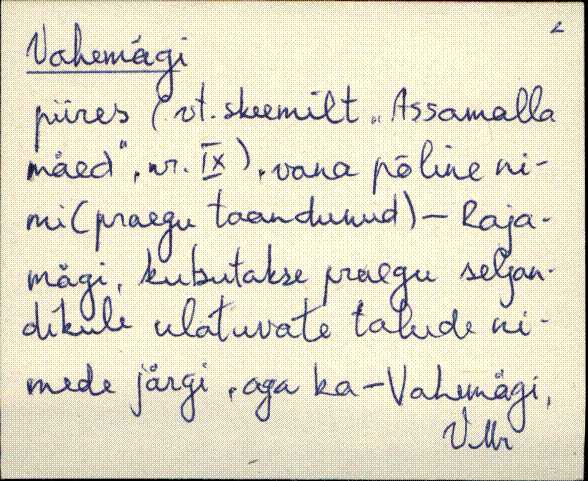 2
Vahemägi
piires (vt. skeemilt „Assamalla
mäed", nr. IX), vana põline ni-
mi (praegu taandunud) – Raja-
mägi, kutsutakse praegu seljan-
dikule ulatuvate talude ni-
mede järgi, aga ka – Vahemägi,
VMr